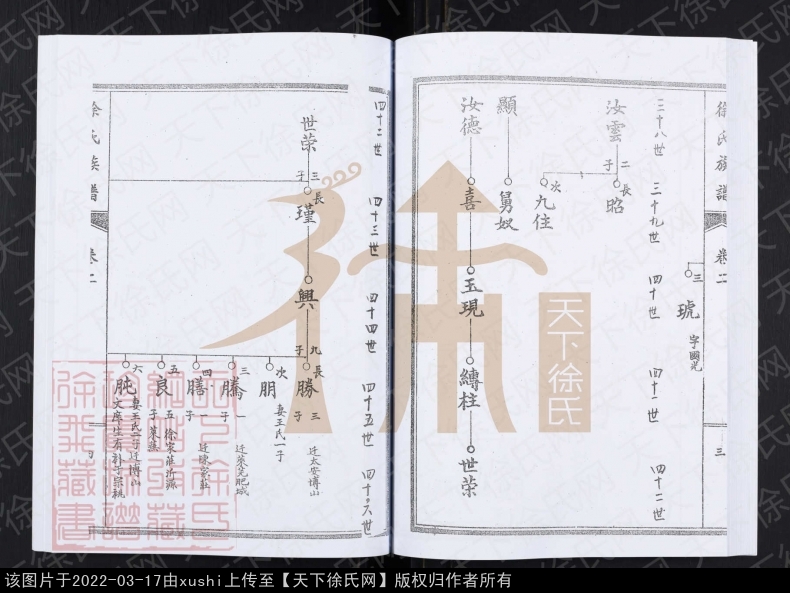 徐氏族譜
卷二
三
三十八世
三十九世
四十世
四十一世
四十二世
三
琥
字國光
汝雲
二子
長
昭
次
九住
顯
舅奴
汝德
喜
玉現
縳柱
世荣
四十二世
四十三世
四十四世
四十五世
四十六世
世荣
三子
長
瑾
興
九子
長
勝
三子
迁太安博山
次
朋
妻王氏一子
三
騰
一子
迁萊芜肥城
四
膳
一子
迁陵家莊
五
良
五子
徐家莊沂源
萊蕪
六
肫
妻王氏二子迁博山
徐氏族譜
卷二
天下徐氏
天下徐氏网
该图片于2022-03-17由xushi上传至【天下徐氏网】版权归作者所有